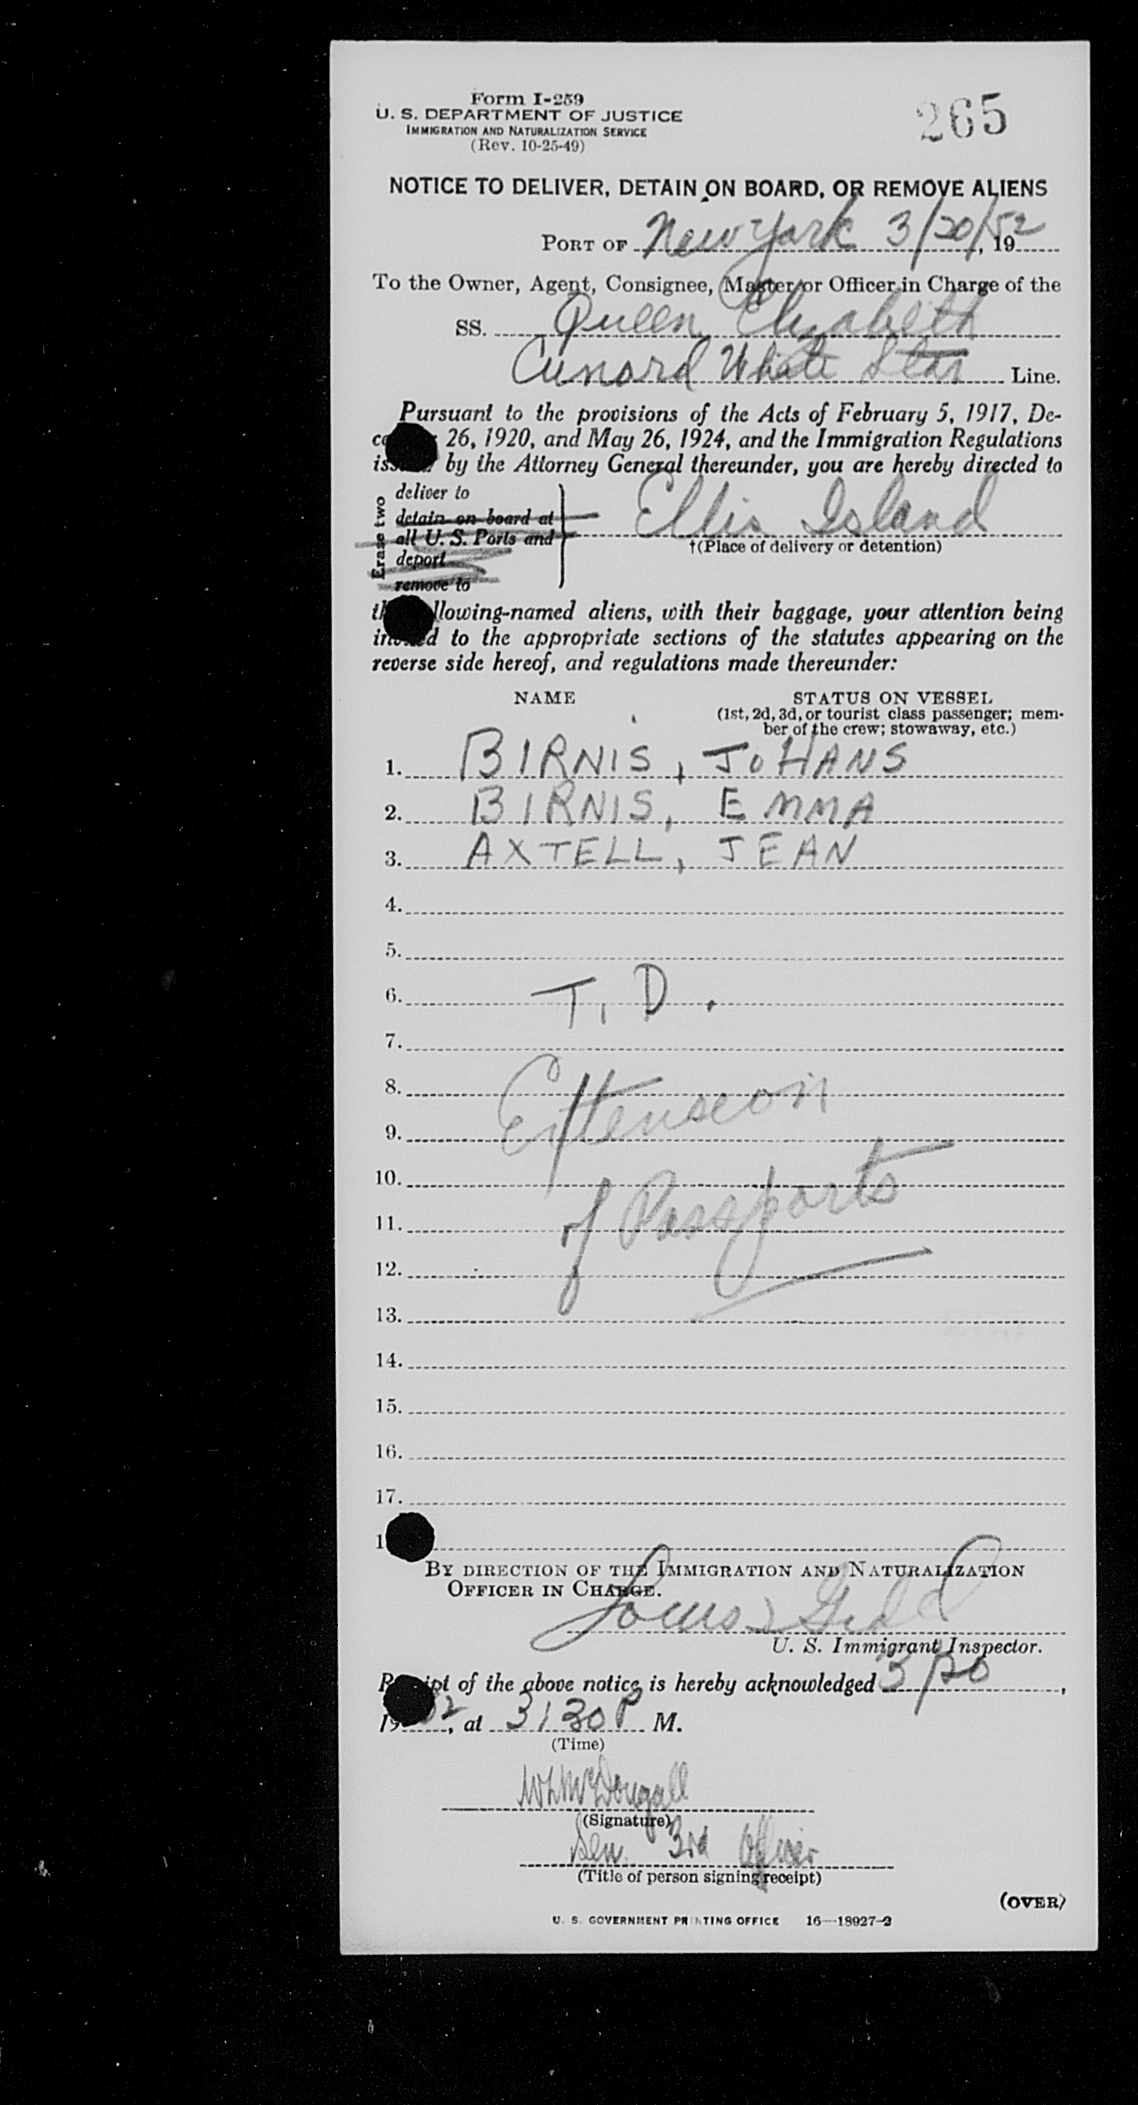 Form I-259
U. S. DEPARTMENT OF JUSTICE
IMMIGRATION AND NATURALIZATION SERVICE
(Rev. 10-25-49)
265
NOTICE TO DELIVER, DETAIN ON BOARD, OR REMOVE ALIENS
PORT OF New York 3/20/, 1952
To the Owner, Agent, Consignee, Master or Officer in Charge of the
SS. Queen Elizabeth
Cunard White Star Line.
Pursuant to the provisions of the Acts of February 5, 1917, De-
26, 1920, and May 26, 1924, and the Immigration Regulations
by the Attorney General thereunder, you are hereby directed to
Erase two
deliver to
detain on board at
all U. S. Ports and
deport
remove to
Ellis Island
†(Place of delivery or detention)
following-named aliens, with their baggage, your attention being
to the appropriate sections of the statutes appearing on the
reverse side hereof, and regulations made thereunder:
NAME
STATUS ON VESSEL
(1st, 2d, 3d, or tourist class passenger; mem-
ber of the crew; stowaway, etc.)
1. BIRNIS, JOHANS
2. BIRNIS, EMMA
3. AXTELL, JEAN
4.
5.
6. T. D.
7.
8. Extenseon
9.
10.
11. of Passports
12.
13.
14.
15.
16.
17.
BY DIRECTION OF THE IMMIGRATION AND NATURALIZATION
OFFICER IN CHARGE.
Louis
U. S. Immigrant Inspector.
Receipt of the above notice is hereby acknowledged 3/20,
1952, at 3:30 P M.
(Time)
McDougall
(Signature)
Sen. 3rd Officer
(Title of person signing receipt)
(OVER)
U. S. GOVERNMENT PRINTING OFFICE 16—18927-2